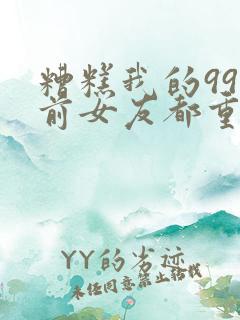 糟糕我的99
前女友都重
YY的劣迹
未经同意禁止转载